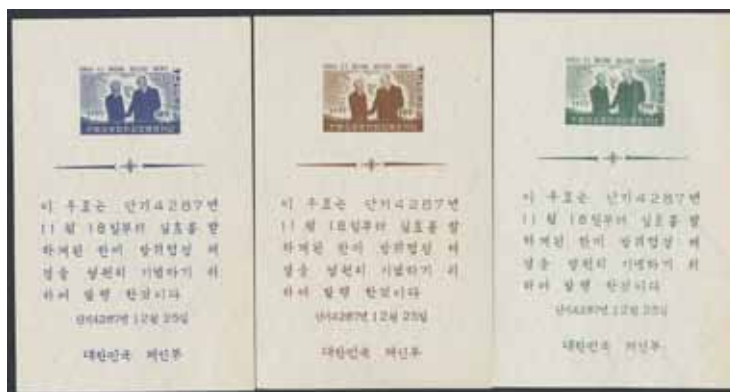 이 우표는 단기4287년
11월 18일부터 실효를 발
하게된 한미 방위협정 체
결을 영원히 기념하기 위
하여 발행 한것이다
단기4287년 12월 25일
대한민국 체신부
이 우표는 단기4287년
11월 18일부터 실효를 발
하게된 한미 방위협정 체
결을 영원히 기념하기 위
하여 발행 한것이다
단기4287년 12월 25일
대한민국 체신부
이 우표는 단기4287년
11월 18일부터 실효를 발
하게된 한미 방위협정 체
결을 영원히 기념하기 위
하여 발행 한것이다
단기4287년 12월 25일
대한민국 체신부